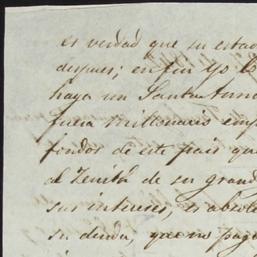 es verdad que su estad
despues; en fin yo
haya un Santa Anna
fuera millonario
fondos de este pais qu
al Zenit de su grand
sus intereses, es absol
su deuda, que no pag